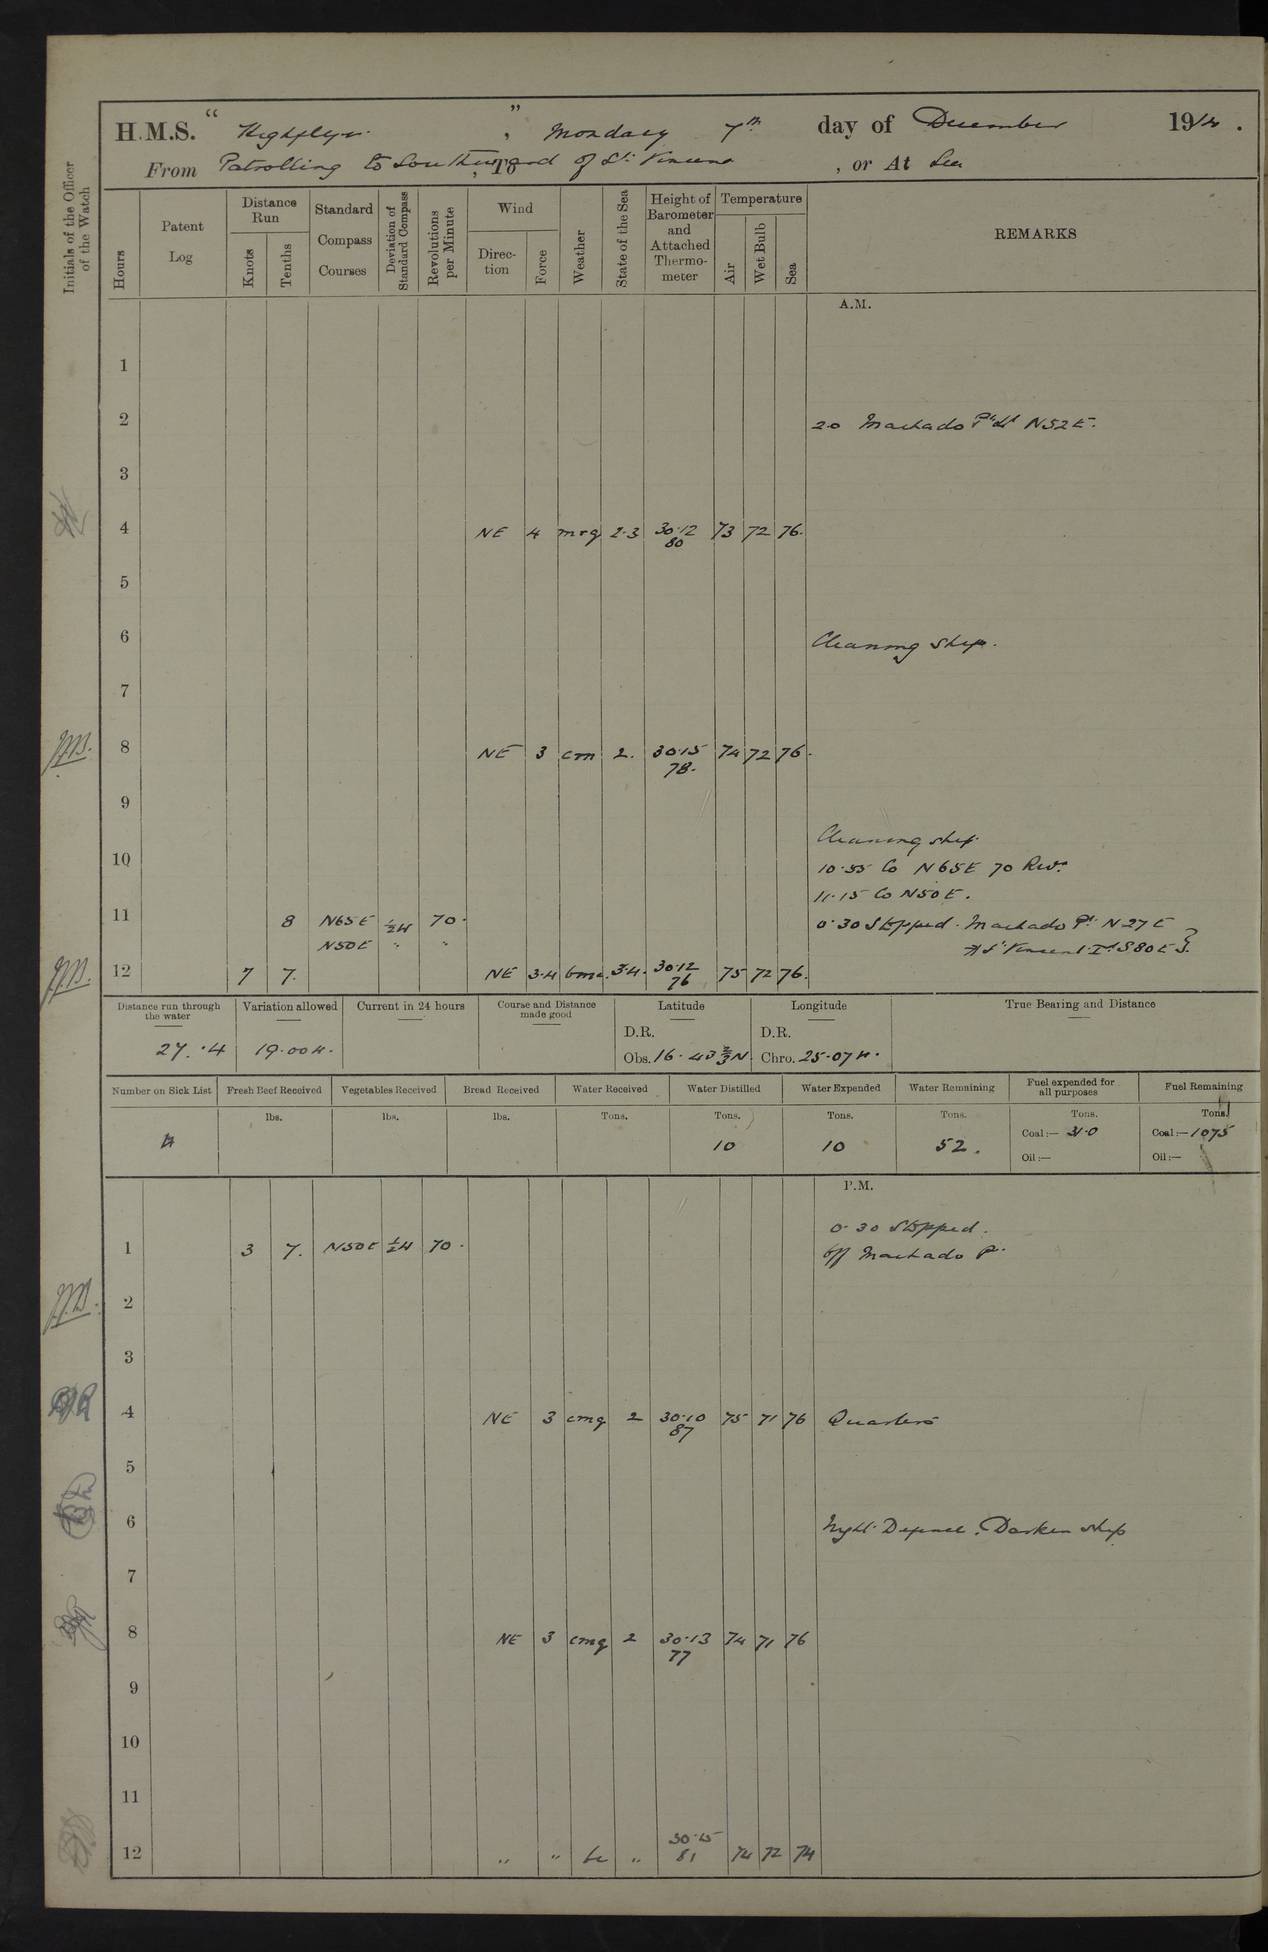 H.M.S. " Highflyer. " , Monday 7th day of December 1914 .
From Patrolling to Southward of St. Vincent , To , or At Sea
Initials of the Officer of the Watch
Hours
Patent Log
Distance Run
Knots
Tenths
Standard Compass Courses
Deviation of Standard Compass
Revolutions per Minute
Wind
Direction
Force
Weather
State of the Sea
Height of Barometer and Attached Thermometer
Temperature
Air
Wet Bulb
Sea
REMARKS
A.M.
1
2 2.0 Machado Pt Lt N52E.
3
4 NE 4 mrq 2.3 30.12 73 72 76.
80
5
6 Cleaning ship.
7
8 NE 3 cm 2. 30.15 74 72 76.
78.
9
Cleaning ship.
10 10.55 Co N65E 70 Revs.
11.15 Co N50E.
11 8 N65E ½W 70. 0.30 Stopped. Machado Pt. N27E
N50E " " St Vincent Id S80E }
12 7 7. NE 3.4 bmc. 3.4. 30.12 75 72 76.
76
Distance run through the water
Variation allowed
Current in 24 hours
Course and Distance made good
Latitude
Longitude
True Bearing and Distance
D.R. D.R.
27.4 19.00W. Obs. 16.43⅔N. Chro. 25.07W.
Number on Sick List
Fresh Beef Received
Vegetables Received
Bread Received
Water Received
Water Distilled
Water Expended
Water Remaining
Fuel expended for all purposes
Fuel Remaining
lbs. lbs. lbs. Tons. Tons. Tons. Tons. Tons. Tons.
10 10 52. Coal:— 31.0 Coal:— 1075
Oil:— Oil:—
P.M.
0.30 Stopped.
1 3 7. N50E ½W 70. off Machado Pt.
2
3
4 NE 3 cmq 2 30.10 75 71 76 Quarters
87
5
6 Night Defence. Darken ship
7
8 NE 3 cmq 2 30.13 74 71 76
77
9
10
11
30.15
12 " " bc " 81 74 72 74